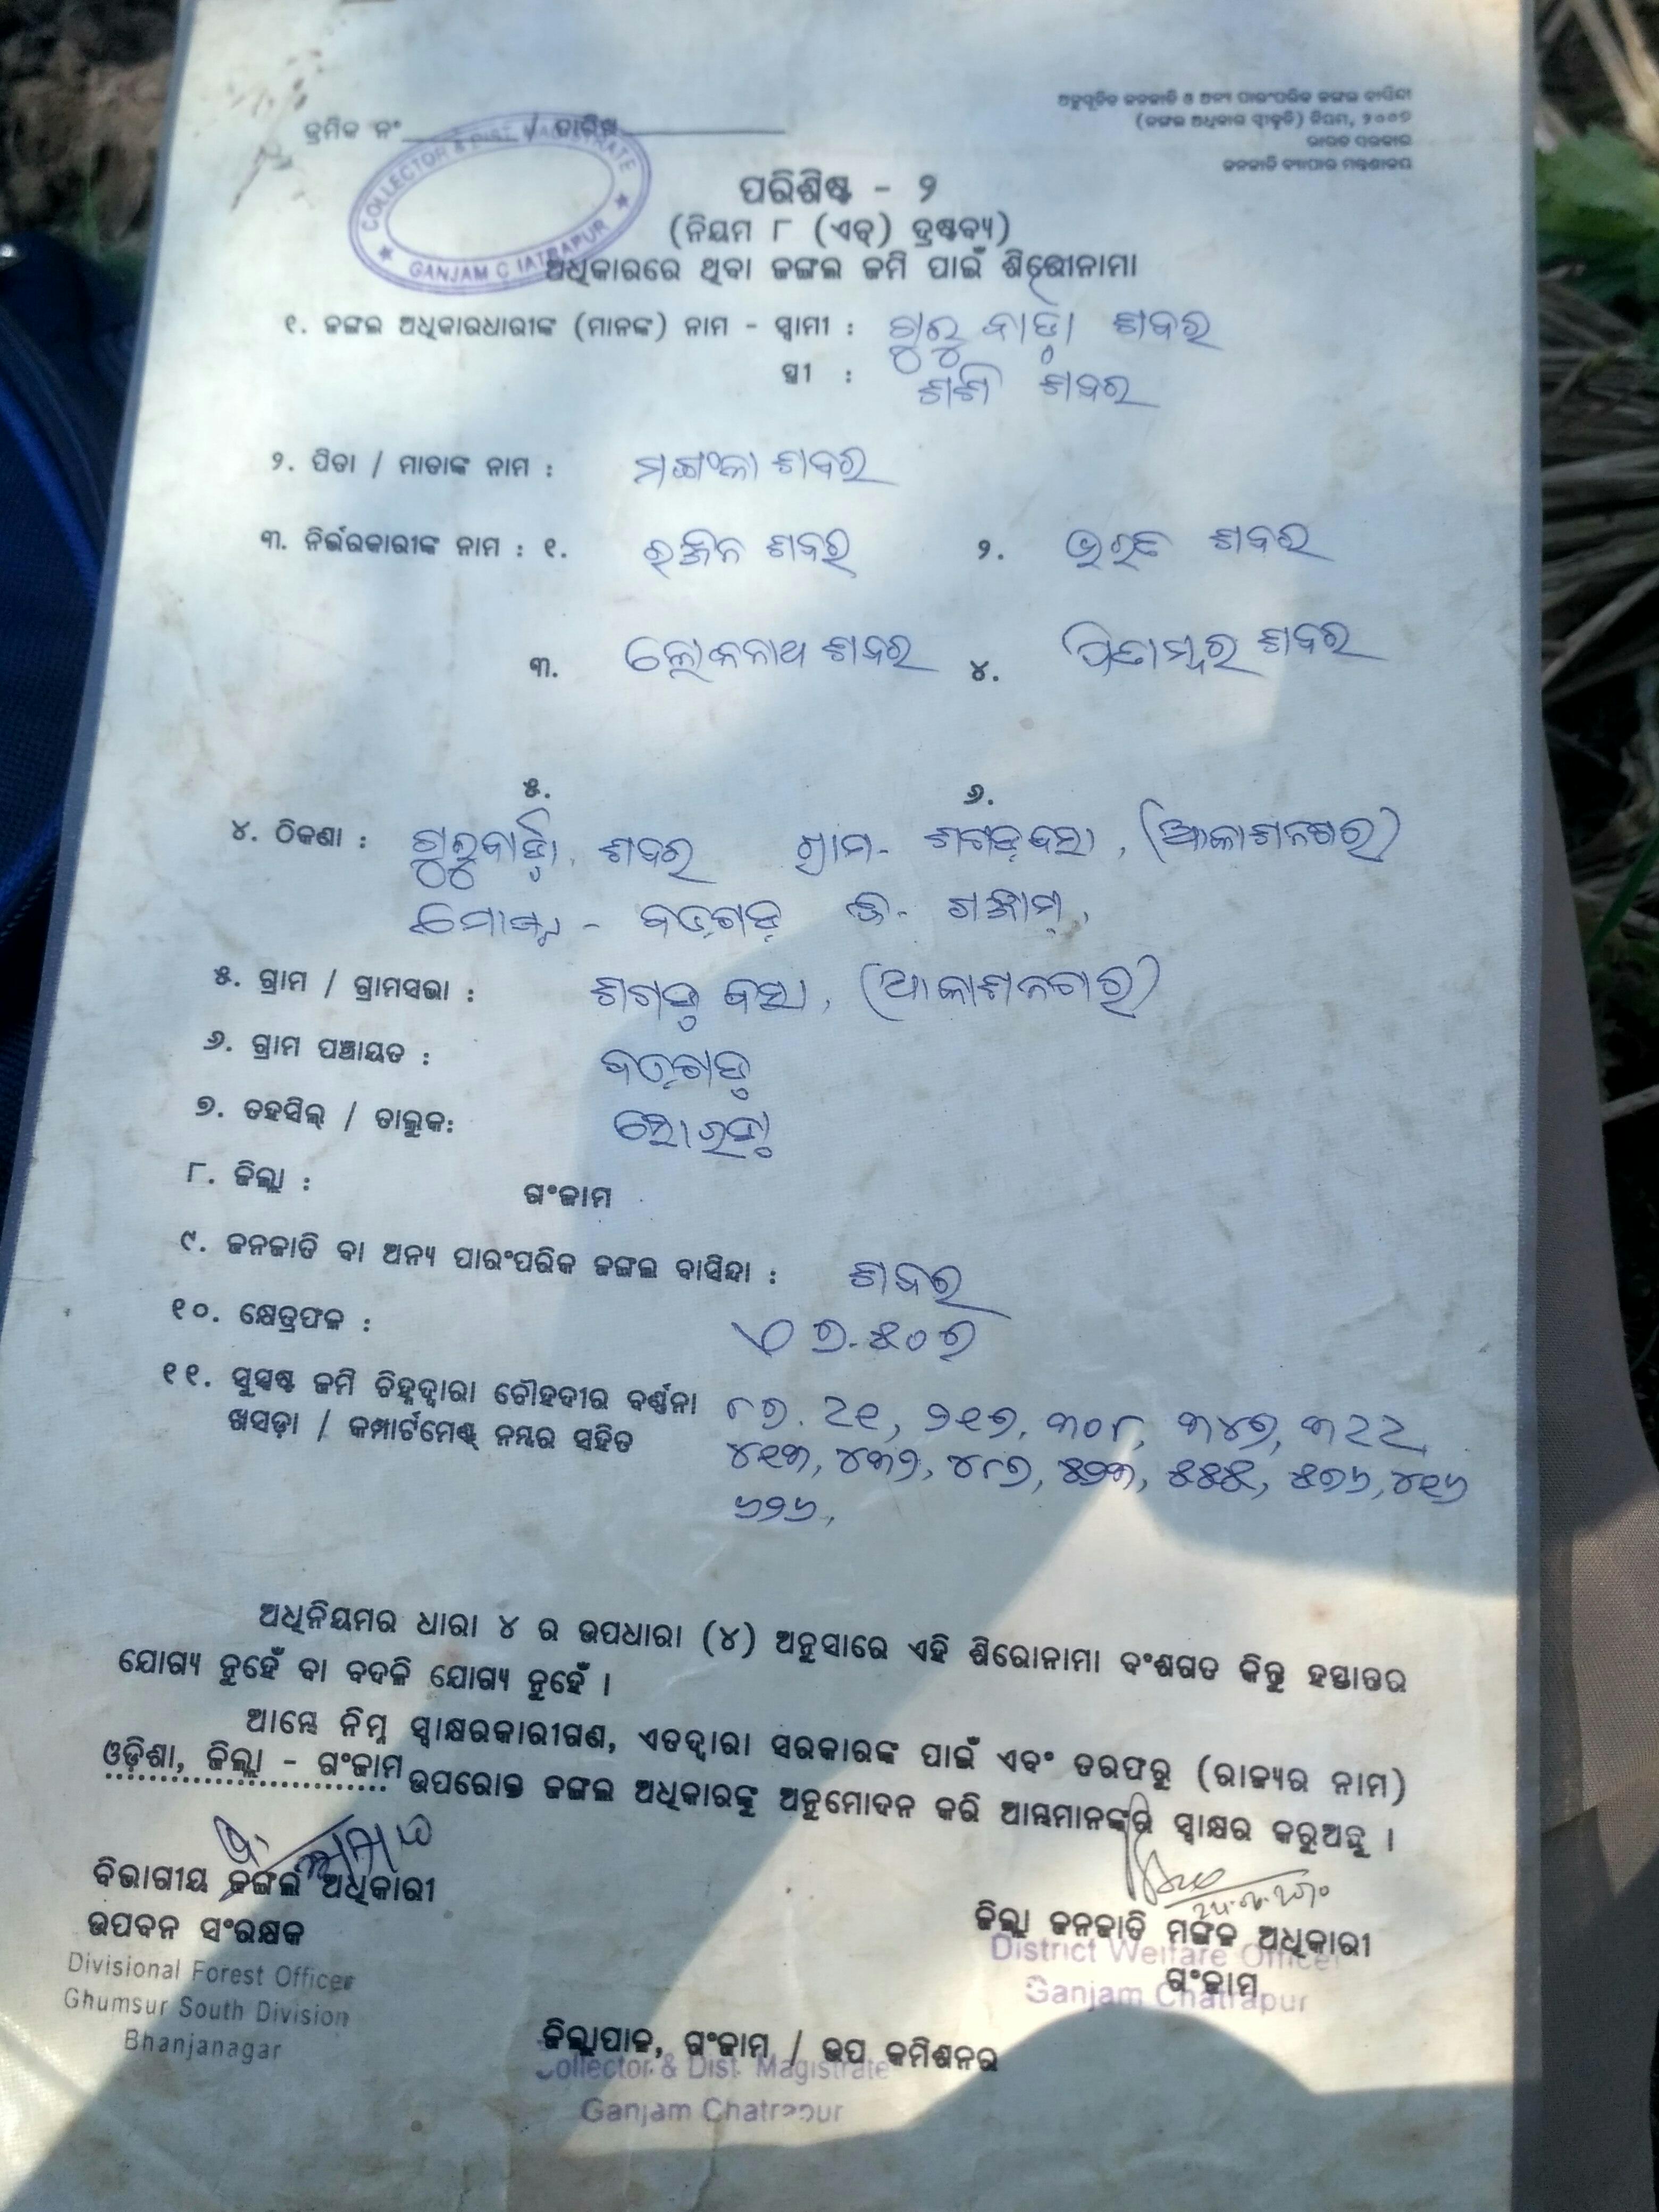 ଅନୁସୂଚିତ ଜନଜାତି ଓ ଅନ୍ୟ ପାରଂପରିକ ଜଙ୍ଗଲ ବାସିନ୍ଦା
(ଜଙ୍ଗଲ ଅଧିକାର ସ୍ୱୀକୃତି) ନିୟମ, ୨୦୦୭
ଭାରତ ସରକାର
ଜନଜାତି ବ୍ୟାପାର ମନ୍ତ୍ରଣାଳୟ
କ୍ରମିକ ନଂ / ତାରିଖ
COLLECTOR & DIST. MAGISTRATE
GANJAM
ପରିଶିଷ୍ଟ - ୨
(ନିୟମ ୮ (ଏଚ୍) ଦ୍ରଷ୍ଟବ୍ୟ)
ଅଧିକାରରେ ଥିବା ଜଙ୍ଗଲ ଜମି ପାଇଁ ଶିରୋନାମା
୧. ଜଙ୍ଗଲ ଅଧିକାରଧାରୀଙ୍କ (ମାନଙ୍କ) ନାମ - ସ୍ୱାମୀ : ଶବର
ସ୍ତ୍ରୀ : ଶଶି ଶବର
୨. ପିତା / ମାତାଙ୍କ ନାମ : ଶବର
୩. ନିର୍ଭରକାରୀଙ୍କ ନାମ : ୧. ରଞ୍ଜନ ଶବର ୨. ଶବର
୩. ଲୋକନାଥ ଶବର ୪. ପିତାମ୍ବର ଶବର
୫. ୬.
୪. ଠିକଣା : ଶବର ଗ୍ରାମ- (ଆକାଶନଗର)
ବଡ଼ଗଡ଼ ଜି- ଗଞ୍ଜାମ୍,
୫. ଗ୍ରାମ / ଗ୍ରାମସଭା : (ଆକାଶନଗର)
୬. ଗ୍ରାମ ପଞ୍ଚାୟତ : ବଡ଼ଗଡ଼
୭. ତହସିଲ୍ / ତାଲୁକ: ସୋରଡ଼ା
୮. ଜିଲ୍ଲା : ଗଂଜାମ
୯. ଜନଜାତି ବା ଅନ୍ୟ ପାରଂପରିକ ଜଙ୍ଗଲ ବାସିନ୍ଦା : ଶବର
୧୦. କ୍ଷେତ୍ରଫଳ : ଏ ୭.୫୦୭
୧୧. ସୁସ୍ପଷ୍ଟ ଜମି ଚିହ୍ନଦ୍ୱାରା ଚୌହଦୀର ବର୍ଣ୍ଣନା ୮୭. ୨୧୭, ୩୦୮, ୩୪୭,
ଖସଡ଼ା / କମ୍ପାର୍ଟମେଣ୍ଟ୍ ନମ୍ବର ସହିତ ୪୧୩, ୪୩୨, ୪୮୭, ୫୨୩, ୫୫୫, ୫୭୬, ୪୧୬
୬୨୬,
ଅଧିନିୟମର ଧାରା ୪ ର ଉପଧାରା (୪) ଅନୁସାରେ ଏହି ଶିରୋନାମା ବଂଶଗତ କିନ୍ତୁ ହସ୍ତାନ୍ତର
ଯୋଗ୍ୟ ନୁହେଁ ବା ବଦଳି ଯୋଗ୍ୟ ନୁହେଁ ।
ଆମ୍ଭେ ନିମ୍ନ ସ୍ୱାକ୍ଷରକାରୀଗଣ, ଏତଦ୍ୱାରା ସରକାରଙ୍କ ପାଇଁ ଏବଂ ତରଫରୁ (ରାଜ୍ୟର ନାମ)
ଓଡ଼ିଶା, ଜିଲ୍ଲା - ଗଂଜାମ ଉପରୋକ୍ତ ଜଙ୍ଗଲ ଅଧିକାରଙ୍କୁ ଅନୁମୋଦନ କରି ଆମ୍ଭମାନଙ୍କର ସ୍ୱାକ୍ଷର କରୁଅଛୁ ।
ବିଭାଗୀୟ ଜଙ୍ଗଲ ଅଧିକାରୀ
ଉପବନ ସଂରକ୍ଷକ
Divisional Forest Officer
Ghumsur South Division
Bhanjanagar
ଜିଲ୍ଲା ଜନଜାତି ମଙ୍ଗଳ ଅଧିକାରୀ
District Welfare Officer
ଗଂଜାମ
Ganjam Chatrapur
ଜିଲ୍ଲାପାଳ, ଗଂଜାମ / ଉପ କମିଶନର
Collector & Dist. Magistrate
Ganjam Chatrapur